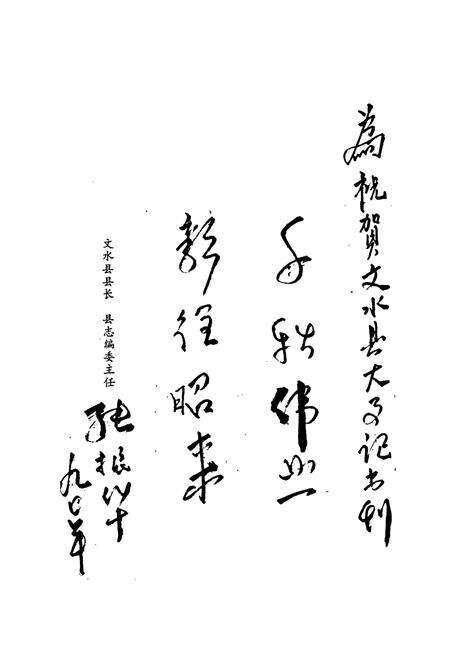 為祝賀文水县大事记出刊
千秋伟业
彰往昭来
文水县县长 县志编委主任
张根
九〇年